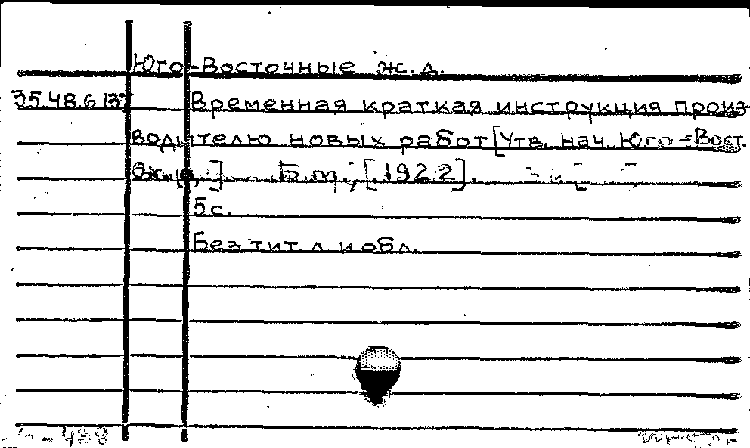 Юго-Восточные ж.д.
35.48.6
Временная краткая инструкция произ-
водителю новых работ [Утв. нач. Юго-Вост.
ж.д.]. Б.м., [1922].
5с.
Без тит. л. и обл.